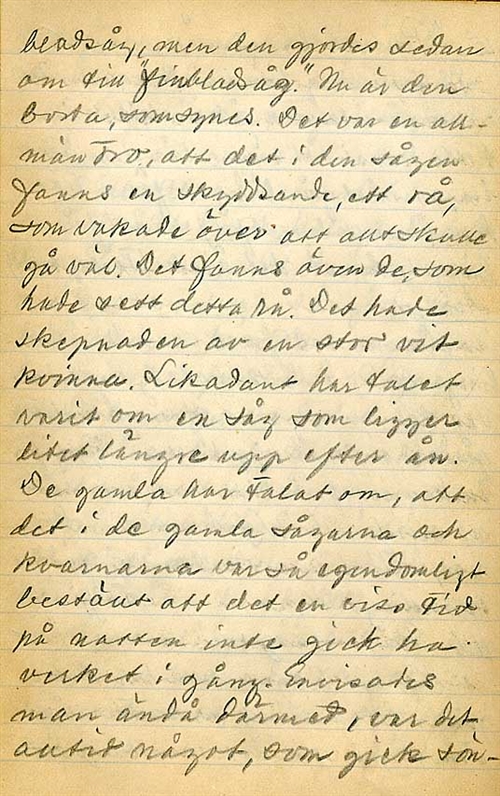 bladsåg, men den gjordes sedan
om till "finbladsåg." Nu är den
borta, som synes. Det var en all-
män tro, att det i den sågen
fanns en skyddsande, ett rå,
som vakade över att allt skulle
gå väl. Det fanns även de, som
hade sett detta rå. Det hade
skepnaden av en stor vit
kvinna. Likadant har talet
varit om en såg som ligger
litet längre upp efter ån.
De gamla har talat om, att
det i de gamla sågarna och
kvarnarna var så egendomligt
beställt att det en viss tid
på natten inte gick ha
verket i gång. Envisades
man ändå därmed, var det
alltid något, som gick sön-